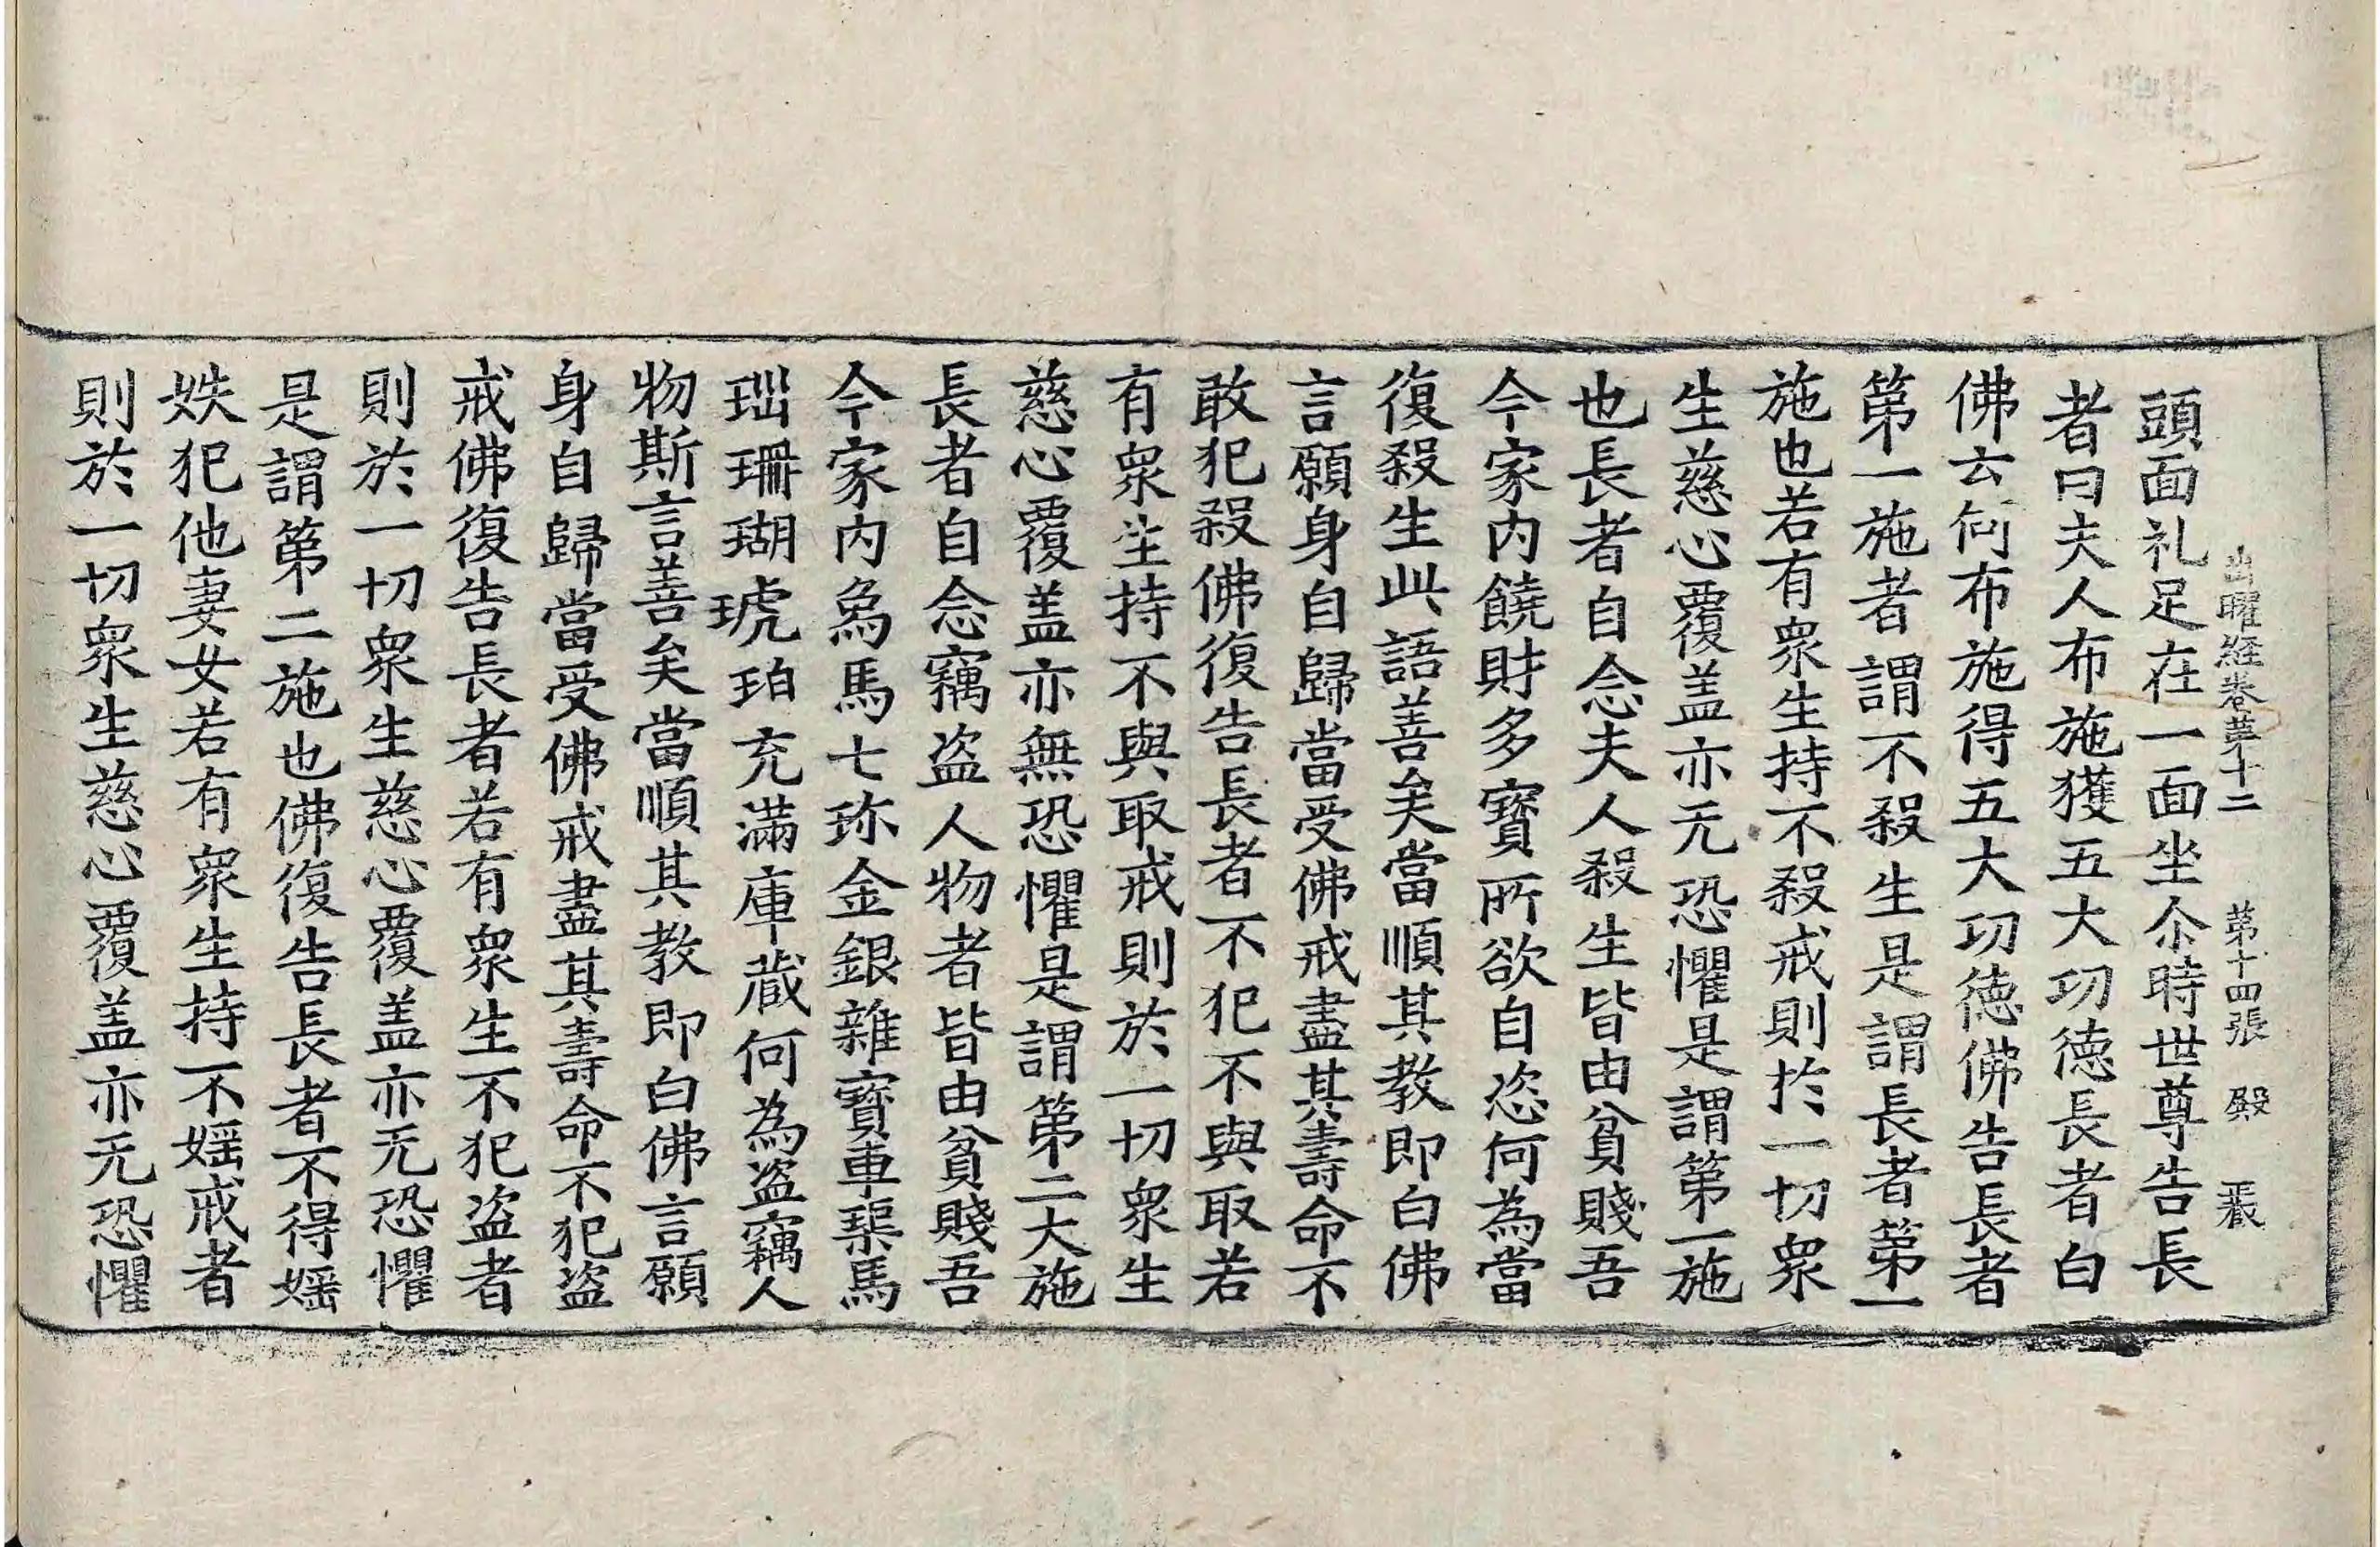 出曜經卷第十二　第十四張　殿
頭面礼足在一面坐尒時世尊告長
者曰夫人布施獲五大功德長者白
佛云何布施得五大功德佛告長者
第一施者謂不殺生是謂長者第一
施也若有衆生持不殺戒則於一切衆
生慈心覆盖亦无恐懼是謂第一施
也長者自念夫人殺生皆由貧賤吾
今家内饒財多寶所欲自恣何為當
復殺生此語善矣當順其教即白佛
言願身自歸當受佛戒盡其壽命不
敢犯殺佛復告長者不犯不與取若
有衆生持不與取戒則於一切衆生
慈心覆盖亦無恐懼是謂第二大施
長者自念竊盗人物者皆由貧賤吾
今家内象馬七珎金銀雜寶車渠馬
瑙珊瑚琥珀充滿庫藏何為盗竊人
物斯言善矣當順其教即白佛言願
身自歸當受佛戒盡其壽命不犯盗
戒佛復告長者若有衆生不犯盗者
則於一切衆生慈心覆盖亦无恐懼
是謂第二施也佛復告長者不得婬
妷犯他妻女若有衆生持不婬戒者
則於一切衆生慈心覆盖亦无恐懼